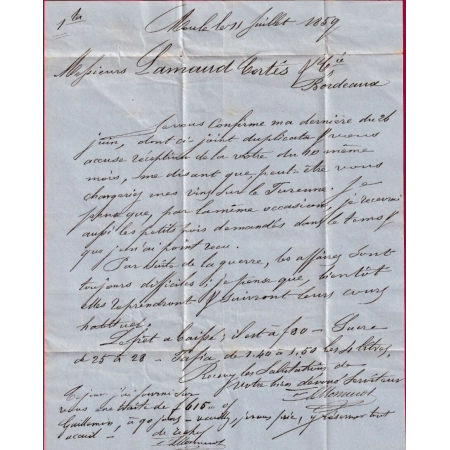 1ta
Moule le 11 Juillet 1859
Messieurs Lamaud Cortès & Cie
Bordeaux
Je vous confirme ma dernière du 26
juin, dont ci joint duplicata & vous
accuse reception de la votre du 30 même
mois, me disant que peut être vous
chargeriez mes vins sur le Turenne. Je
pense que, par la même occasion, je recevrai
aussi les petits pois demandés dans le tems &
que je n'ai point reçu.
Par suite de la guerre, les affaires sont
toujours difficiles; je pense que, bientôt
elles reprendront & suivront leurs cours
habituel.
Le fret a baissé; il est à f 80 - Sucre
de 25 à 28 - Tafia de 1.40 à 1.50 les 4 litres,
Recevez les Salutations de
votre bien dévoué Serviteur
Ce jour j'ai fourni sur
vous une traite de f 615 o/
Guillemin, à 90 jours - veuillez, je vous prie, y réserver bon
accueil -